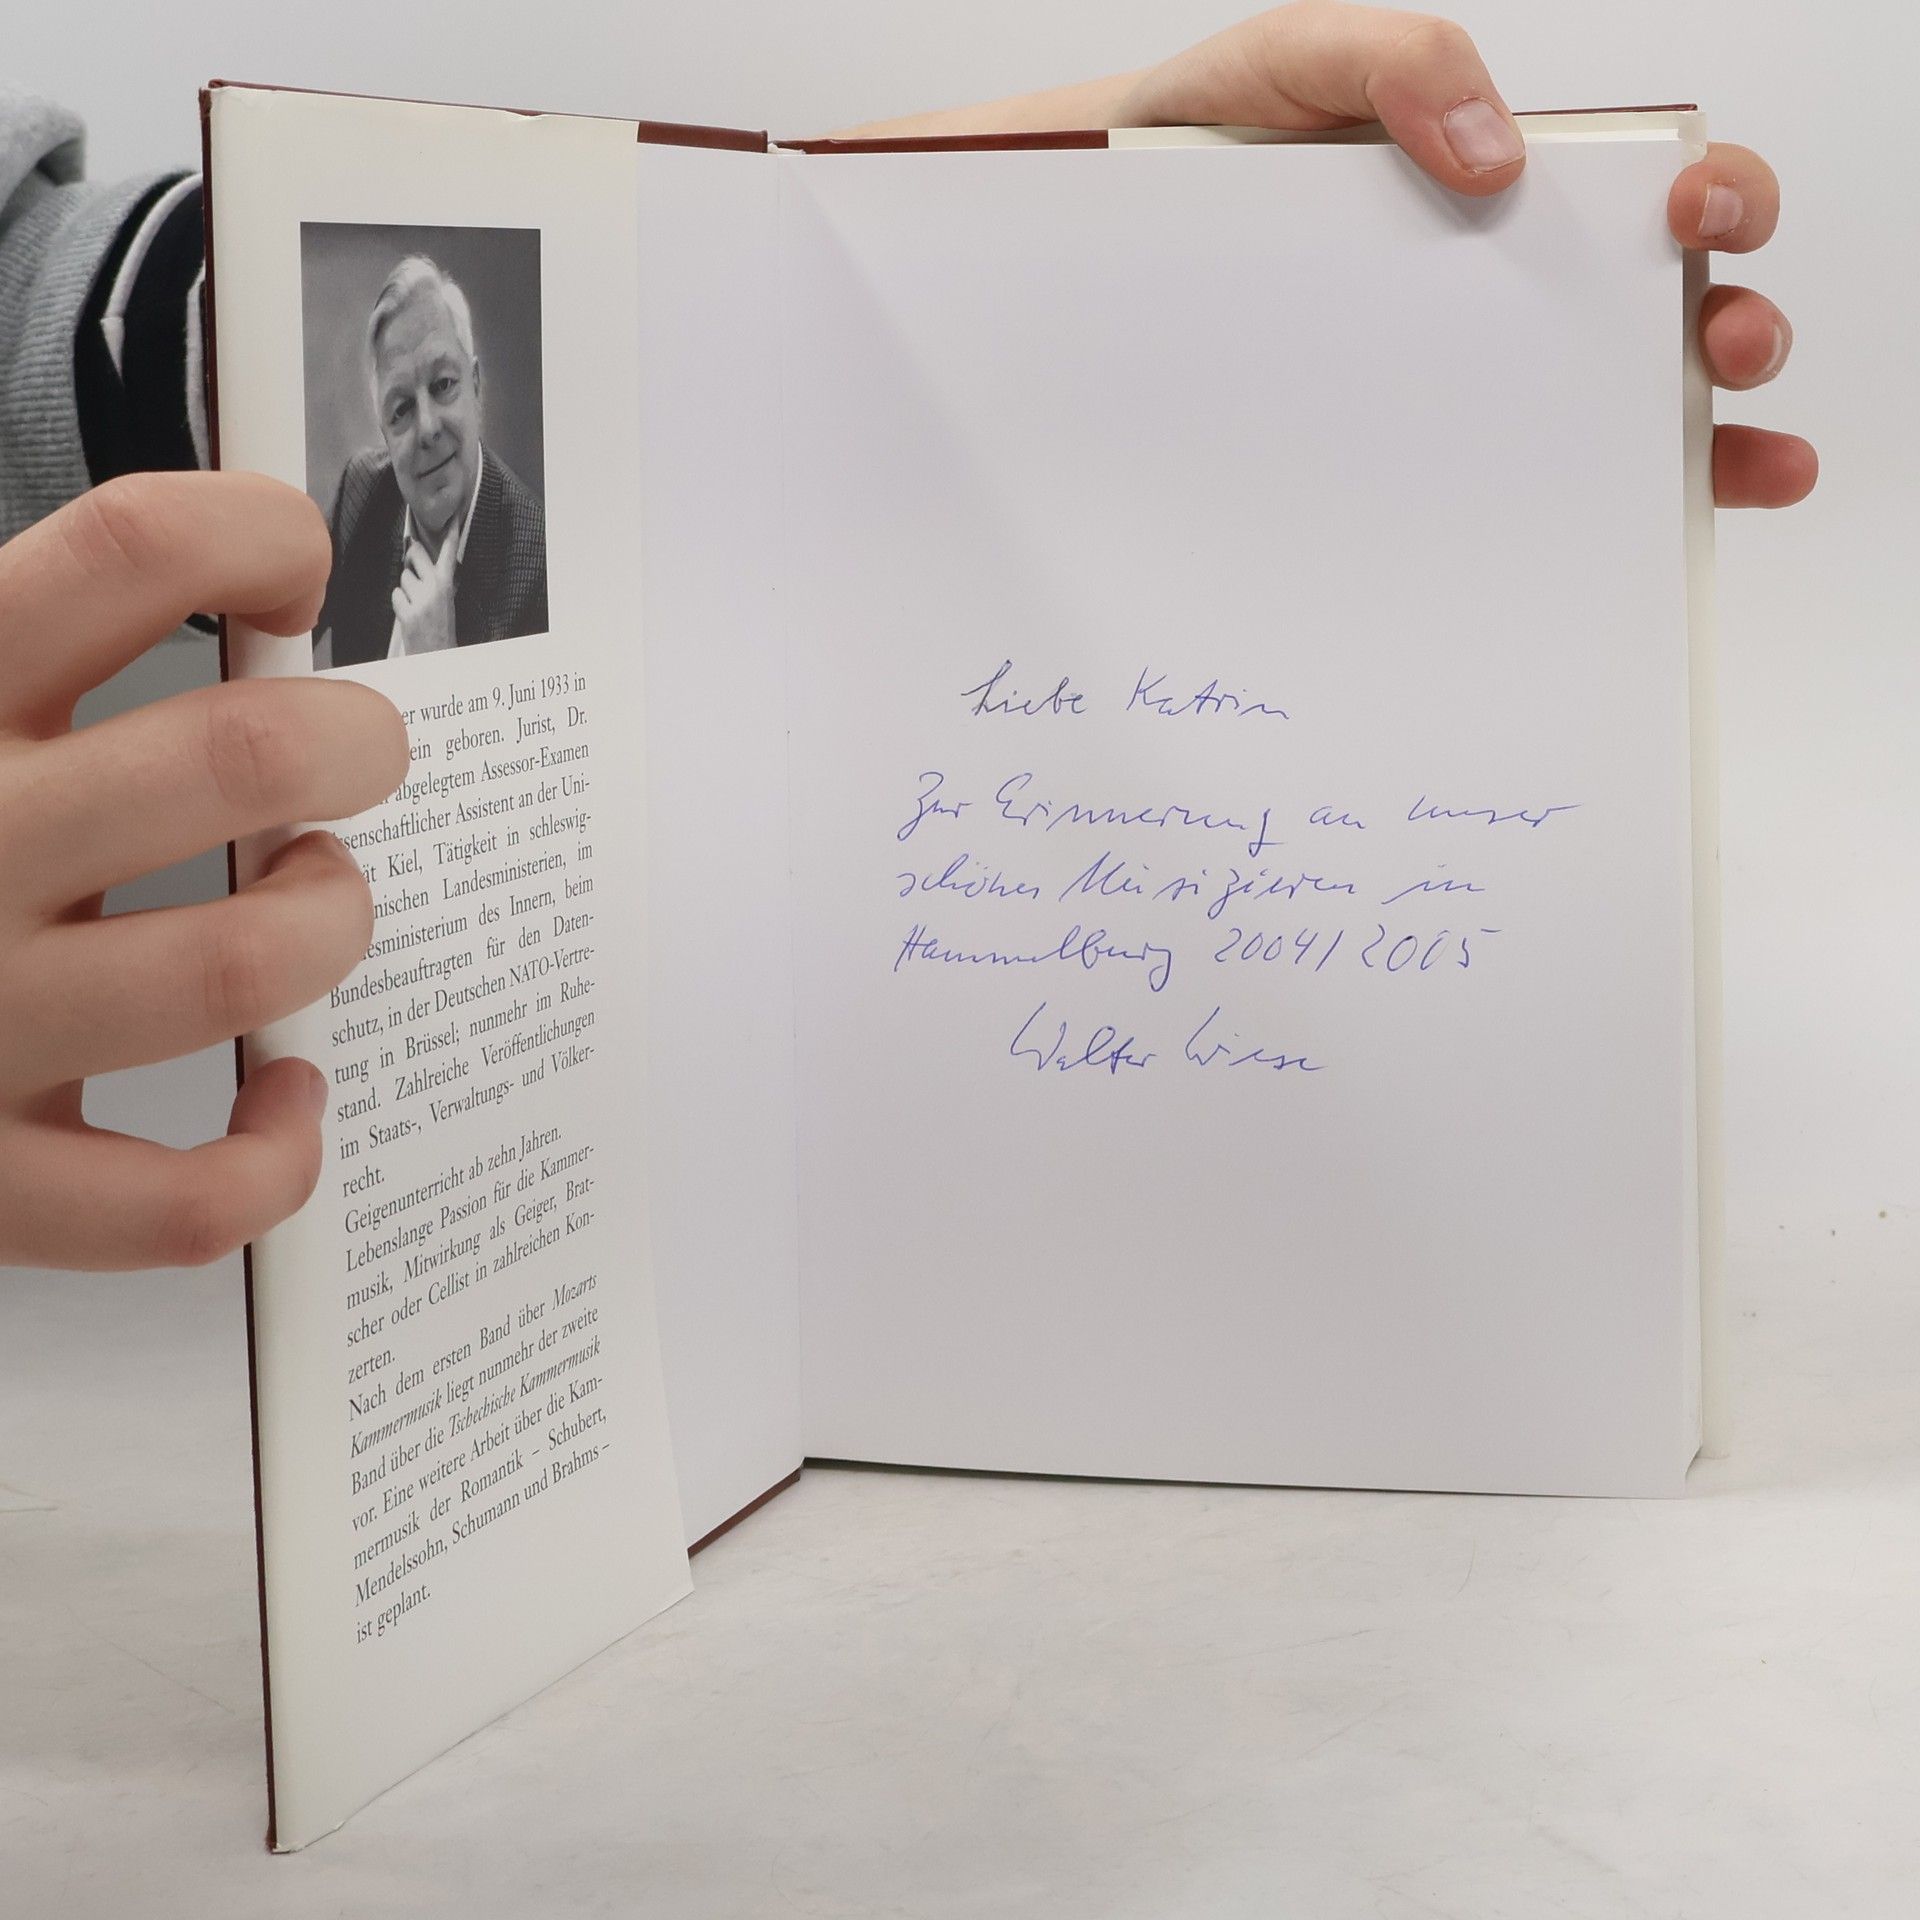 er wurde am 9. Juni 1933 in
ein geboren. Jurist, Dr.
abgelegtem Assessor-Examen
ssenschaftlicher Assistent an der Uni-
ät Kiel, Tätigkeit in schleswig-
nischen Landesministerien, im
esministerium des Innern, beim
Bundesbeauftragten für den Daten-
schutz, in der Deutschen NATO-Vertre-
tung in Brüssel; nunmehr im Ruhe-
stand. Zahlreiche Veröffentlichungen
im Staats-, Verwaltungs- und Völker-
recht.
Geigenunterricht ab zehn Jahren.
Lebenslange Passion für die Kammer-
musik, Mitwirkung als Geiger, Brat-
scher oder Cellist in zahlreichen Kon-
zerten.
Nach dem ersten Band über Mozarts
Kammermusik liegt nunmehr der zweite
Band über die Tschechische Kammermusik
vor. Eine weitere Arbeit über die Kam-
mermusik der Romantik – Schubert,
Mendelssohn, Schumann und Brahms –
ist geplant.
Liebe Katrin
Zur Erinnerung an unser
schönes Musizieren in
Hammelburg 2004/2005
Walter Wiese